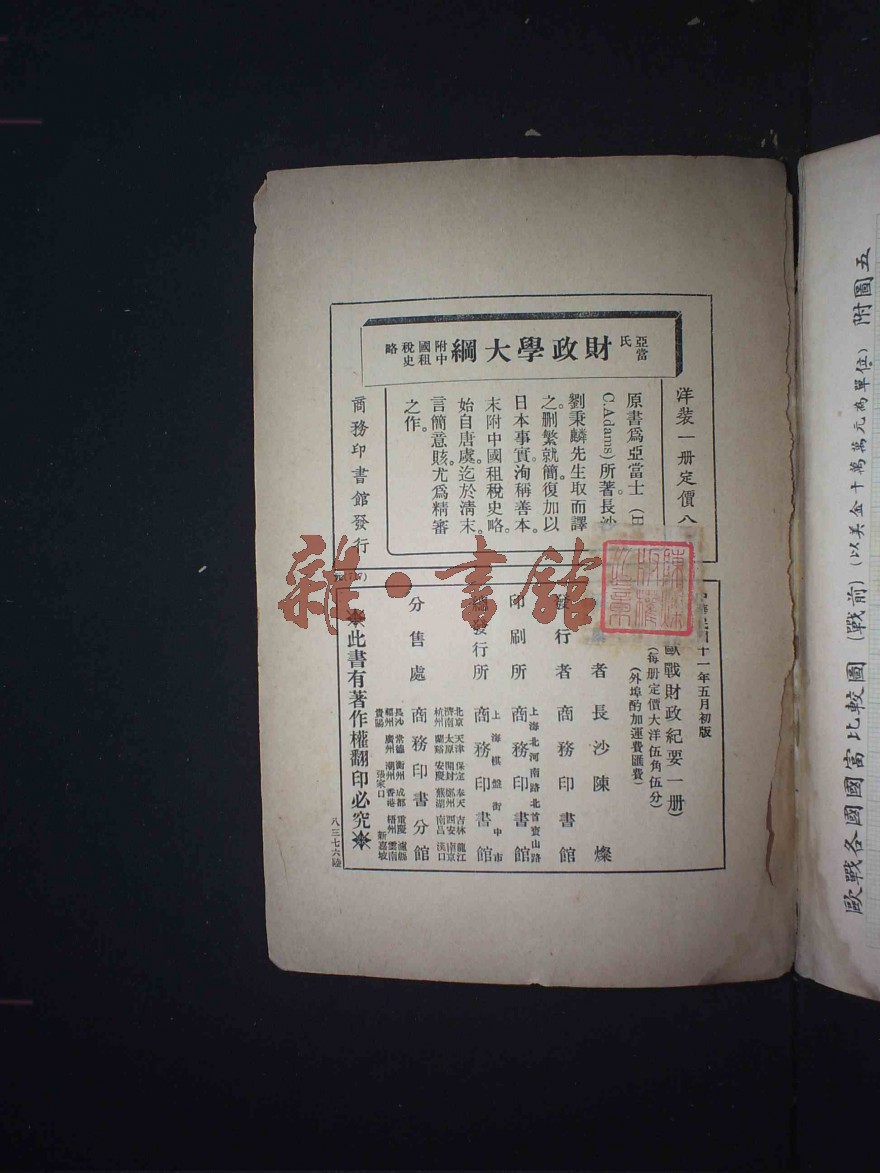 亞當氏 財政學大綱 附中國租稅史略
洋裝一册定價八
原書爲亞當士（H.
C. Adams）所著長沙
劉秉麟先生取而譯
之删繁就簡復加以
日本事實洵稱善本。
末附中國租稅史略。
始自唐虞。迄於清末。
言簡意賅。尤爲精審
之作。
商務印書館發行
中華民國十一年五月初版
歐戰財政紀要一册）
（每册定價大洋伍角伍分）
（外埠酌加運費匯費）
者 長沙陳燦
發行者 商務印書館
印刷所 上海北河南路北首寶山路 商務印書館
發行所 上海棋盤街中市 商務印書館
分售處 商務印書分館
北京 天津 保定 奉天 吉林 龍江
濟南 太原 開封 鄭州 西安 南京
杭州 蘭谿 安慶 蕪湖 南昌 漢口
長沙 常德 衡州 成都 重慶 瀘縣
福州 廣州 潮州 香港 梧州 雲南
貴陽 張家口 新嘉坡
※此書有著作權翻印必究※
八三七六陸
雜·書館
歐戰各國國富比較圖（戰前）（以美金十萬萬元為單位） 附圖五